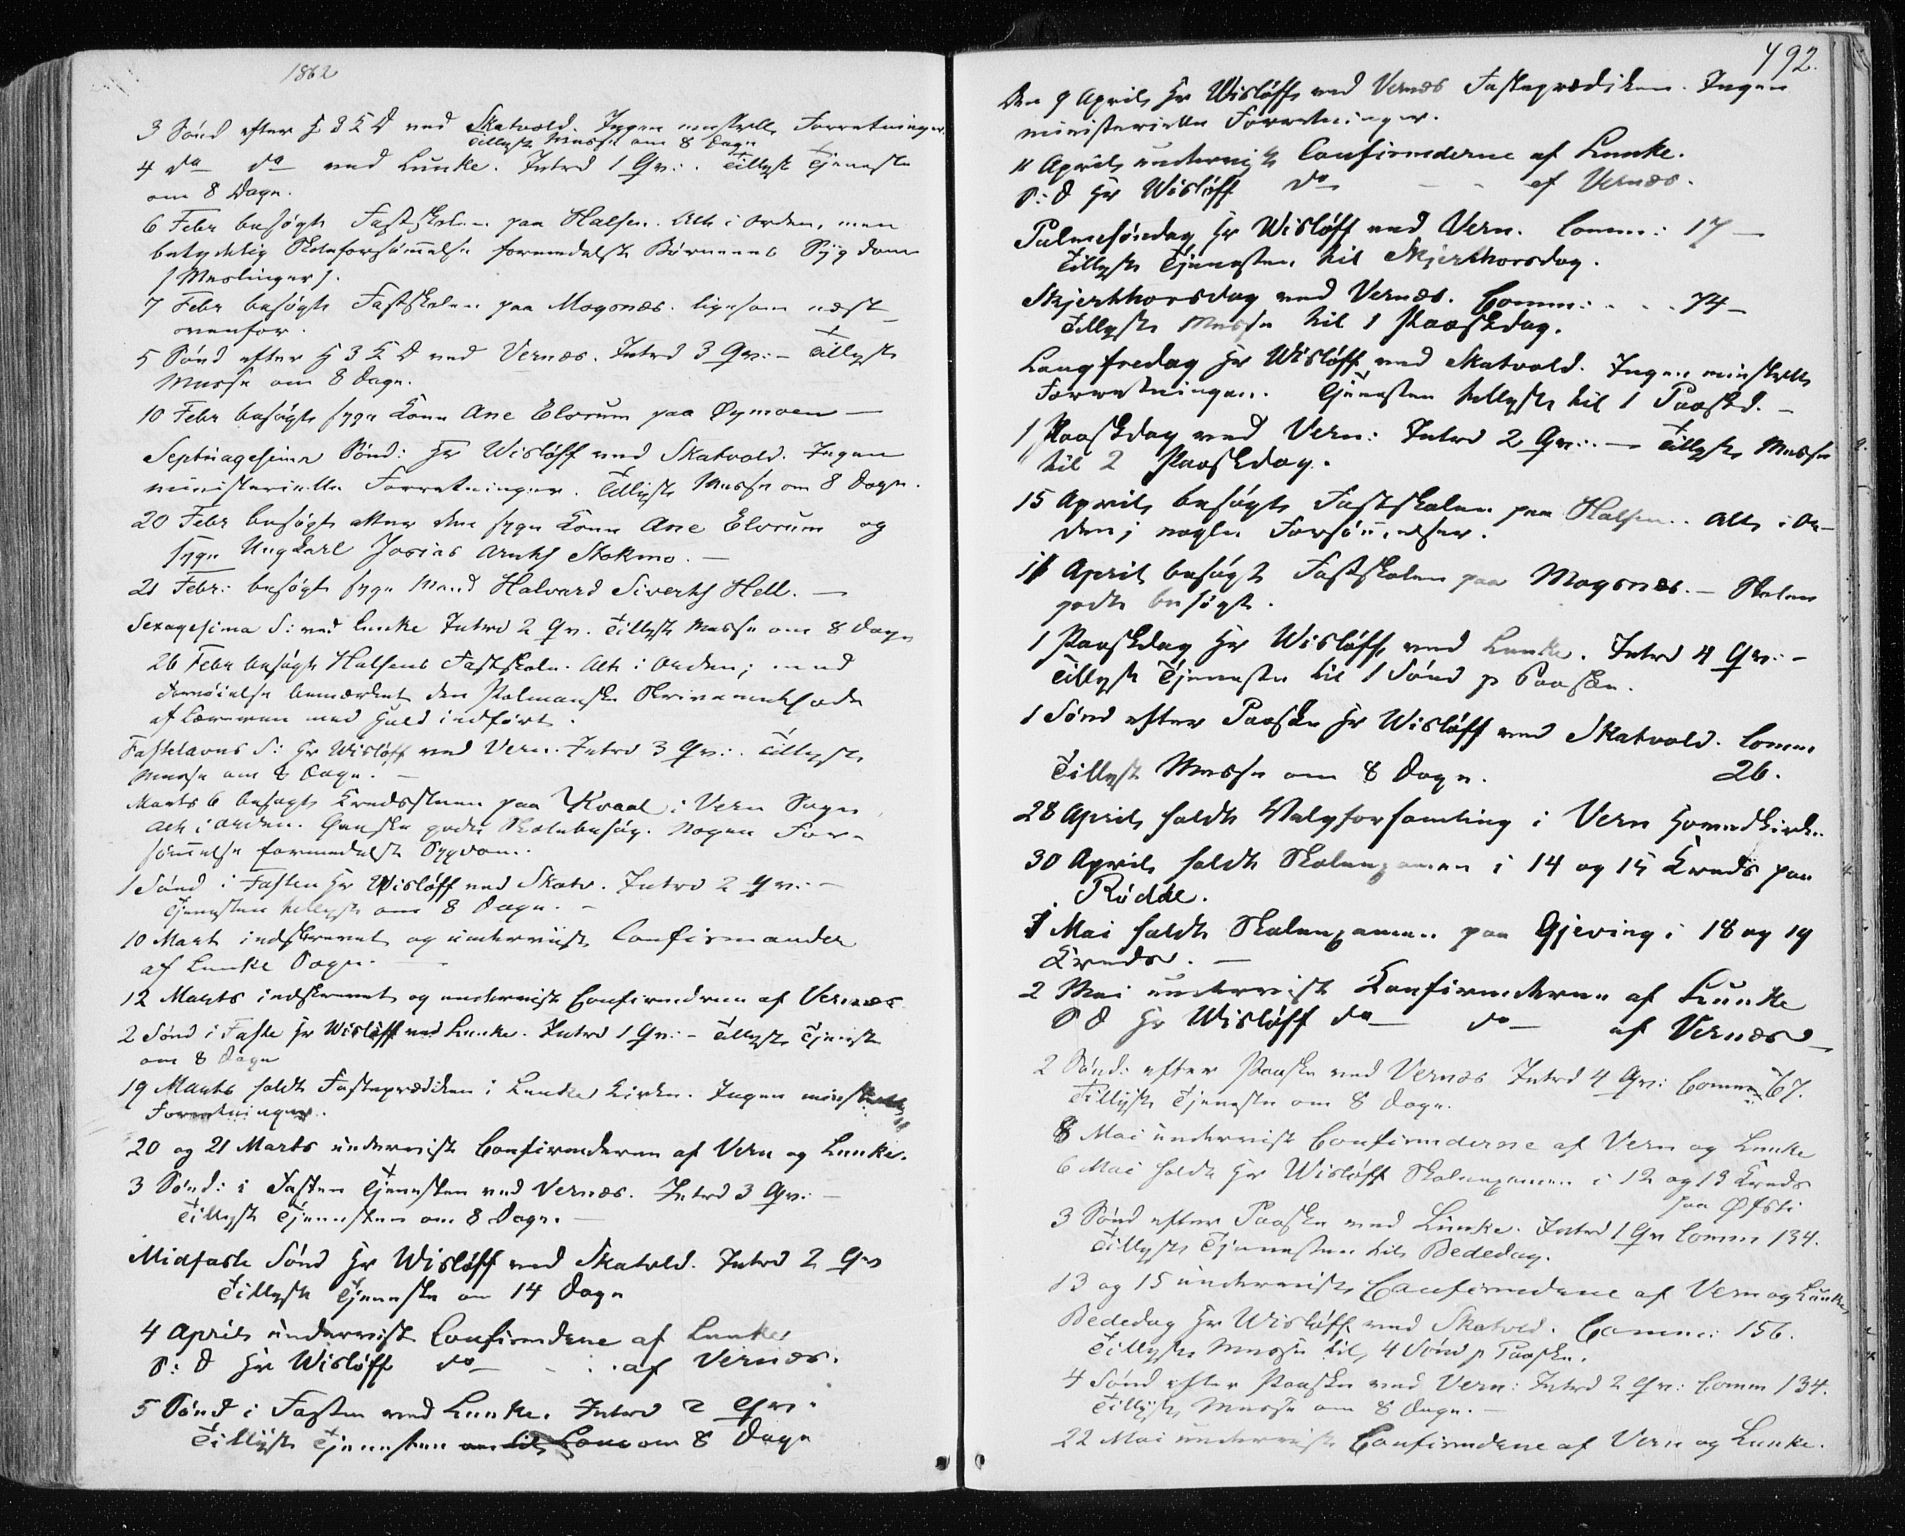 1862
3 Sönd efter H 3 K D ved Skatvold. Ingen minstrlle Forretninger.
Tillyst Messe om 8 Dage
4 do do ved Lunke. Intrd 1 Qv:. Tillyst Tjeneste
om 8 Dage.
6 Febr besögt Fastskolen paa Halsen. Alt i Orden, men
betydelig Skoleforsömmelse formedelst Börnenes Sygdom
(Meslinger).
7 Febr besögt Fastskolen paa Mogsnæs. ligesom næst
ovenfor.
5 Sönd efter H 3 K D ved Vernæs. Intrd 3 Qv: – Tillyst
Messe om 8 Dage.
10 Febr besögt syge Kone Ane Elvrum paa Øymoen –
Septuagesima Sönd: Hr Wislöff ved Skatvold. Ingen
ministerielle Forretninger. Tillyst Messe om 8 Dage.
20 Febr besögt atter den syge Kone Ane Elvrum og
syge Ungkarl Josias Arnts Stokmo. –
21 Febr: besögt syge Mand Halvard Siverts Hell. –
Sexagesima S: ved Lunke Intrd 2 Qv. Tillyst Messe om 8 Dage
26 Febr besögt Halsens Fastskole. Alt i Orden; med
Fornöielse bemærket den Polmanske Skrivemethode
af Læreren med Held indfört.
Fastelavns S: Hr Wislöff ved Vern. Intrd 3 Qv:. Tillyst
Messe om 8 Dage. –
Marts 6 besögt Kredsstuen paa Kvaal i Vern Sogn
Alt i Orden. Ganske godt Skolebesög. Nogen For-
sömmelse formedelst Sygdom.
1 Sönd i Fasten Hr Wislöff ved Skatv. Intrd 2 Qv: –
Tjenesten tillyst om 8 Dage. –
10 Mart indskrevet og underviist Confirmander
af Lunke Sogn. –
12 Marts indskrevet og underviist Confirmdrne af Vernæs
2 Sönd i Faste Hr Wislöff ved Lunke. Intrd 1 Qv: – Tillyst Tjeneste
om 8 Dage
19 Marts holdt Fasteprædiken i Lunke Kirke. Ingen minstrelle
Forretninger.
20 og 21 Marts underviist Confirmderne af Vern og Lunke.
3 Sönd: i Fasten Tjenesten ved Vernæs. Intrd 3 Qv: –
Tillyst Tjenesten om 8 Dage. –
Midfaste Sönd Hr Wislöff ved Skatvld. Intrd 2 Qv
Tillyst Tjeneste om 14 Dage
4 April underviist Confirmdrne af Lunke
S: D Hr Wislöff do – - . . af Vernæs.
5 Sönd i Fasten ved Lunke. Intrd 2 Qv.
Tillyst Tjenesten om 8 Dage
492.
Den 9 April Hr Wislöff ved Vernæs Fasteprædiken. Ingen
ministerielle Forretninger.
11 April underviist Confirmderne af Lunke.
S: D Hr Wislöff do – - - af Vernæs.
Palmesöndag Hr Wislöff ved Vern. Comm: 17 –
Tillyst Tjenesten til Skjerthorsdag.
Skjerthorsdag ved Vernæs. Comm: . . . 74 –
Tillyst Messe til 1 Paaskdag.
Langfredag Hr Wislöff ved Skatvold. Ingen minstrlle
Forretninger. Tjenesten tillyst til 1 Paaskd. –
1 Paaskdag ved Vern: Intrd 2 Qv:. – Tillyst Messe
til 2 Paaskdag.
15 April besögt Fastskolen paa Halsen. Alt i Or-
den; nogle Forsömmelser.
April besögt Fastskolen paa Mogsnæs. – Skolen
godt besögt.
1 Paaskdag Hr Wislöff ved Lunke. Intrd 4 Qv: –
Tillyst Tjeneste til 1 Sönd p Paaske.
1 Sönd efter Paaske Hr Wislöff ved Skatvold. Comm
Tillyst Messe om 8 Dage. 26.
28 April holdt Valgforsamling i Vern Hovedkirke.
30 April holdt Skolexamen i 14 og 15 Kreds paa
Rödde.
1 Mai holdt Skolexamen paa Gjeving i 18 og 19
Kreds. –
2 Mai underviist Konfirmderne af Lunke
S D Hr Wislöff do – do – af Vernæs –
2 Sönd: efter Paaske ved Vernæs Intrd 4 Qv: Comm: 67.
Tillyst Tjeneste om 8 Dage.
8 Mai underviist Confirmderne af Vern og Lunke
6 Mai holdt Hr Wislöff Skolexamen i 12 og 13 Kreds
paa Øfsti
3 Sönd efter Paaske ved Lunke. Intrd 1 Qv Comm 134.
Tillyst Tjenesten til Bededag.
13 og 15 underviist Confirmdene af Vern og Lunke
Bededag Hr Wislöff ved Skatvld. Comm: 156.
Tillyst Messe til 4 Sönd p Paaske.
4 Sönd efter Paaske ved Vern: Intrd 2 Qv: Comm 134.
Tillyst Messe om 8 Dage. –
22 Mai underviist Confirmdene af Vern og Lunke.